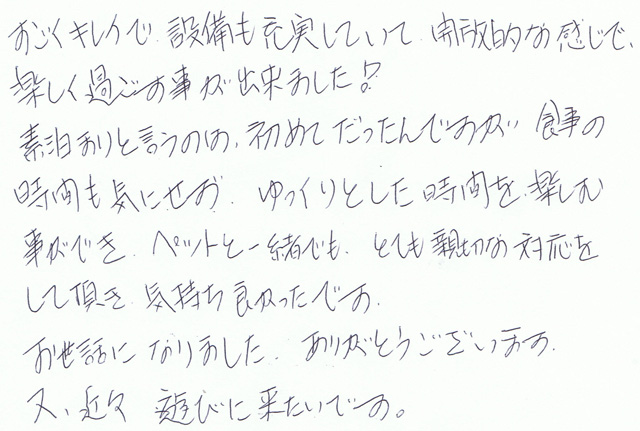 すごくキレイで、設備も充実していて、開放的な感じで、
楽しく過ごす事が出来ました!?
素泊まりと言うのは、初めてだったんですが、食事の
時間も気にせず、ゆっくりとした時間を、楽しむ
事ができ、ペットと一緒でも、とても親切な対応を
して頂き、気持ち良かったです。
お世話になりました。ありがとうございます。
又、近々遊びに来たいです。